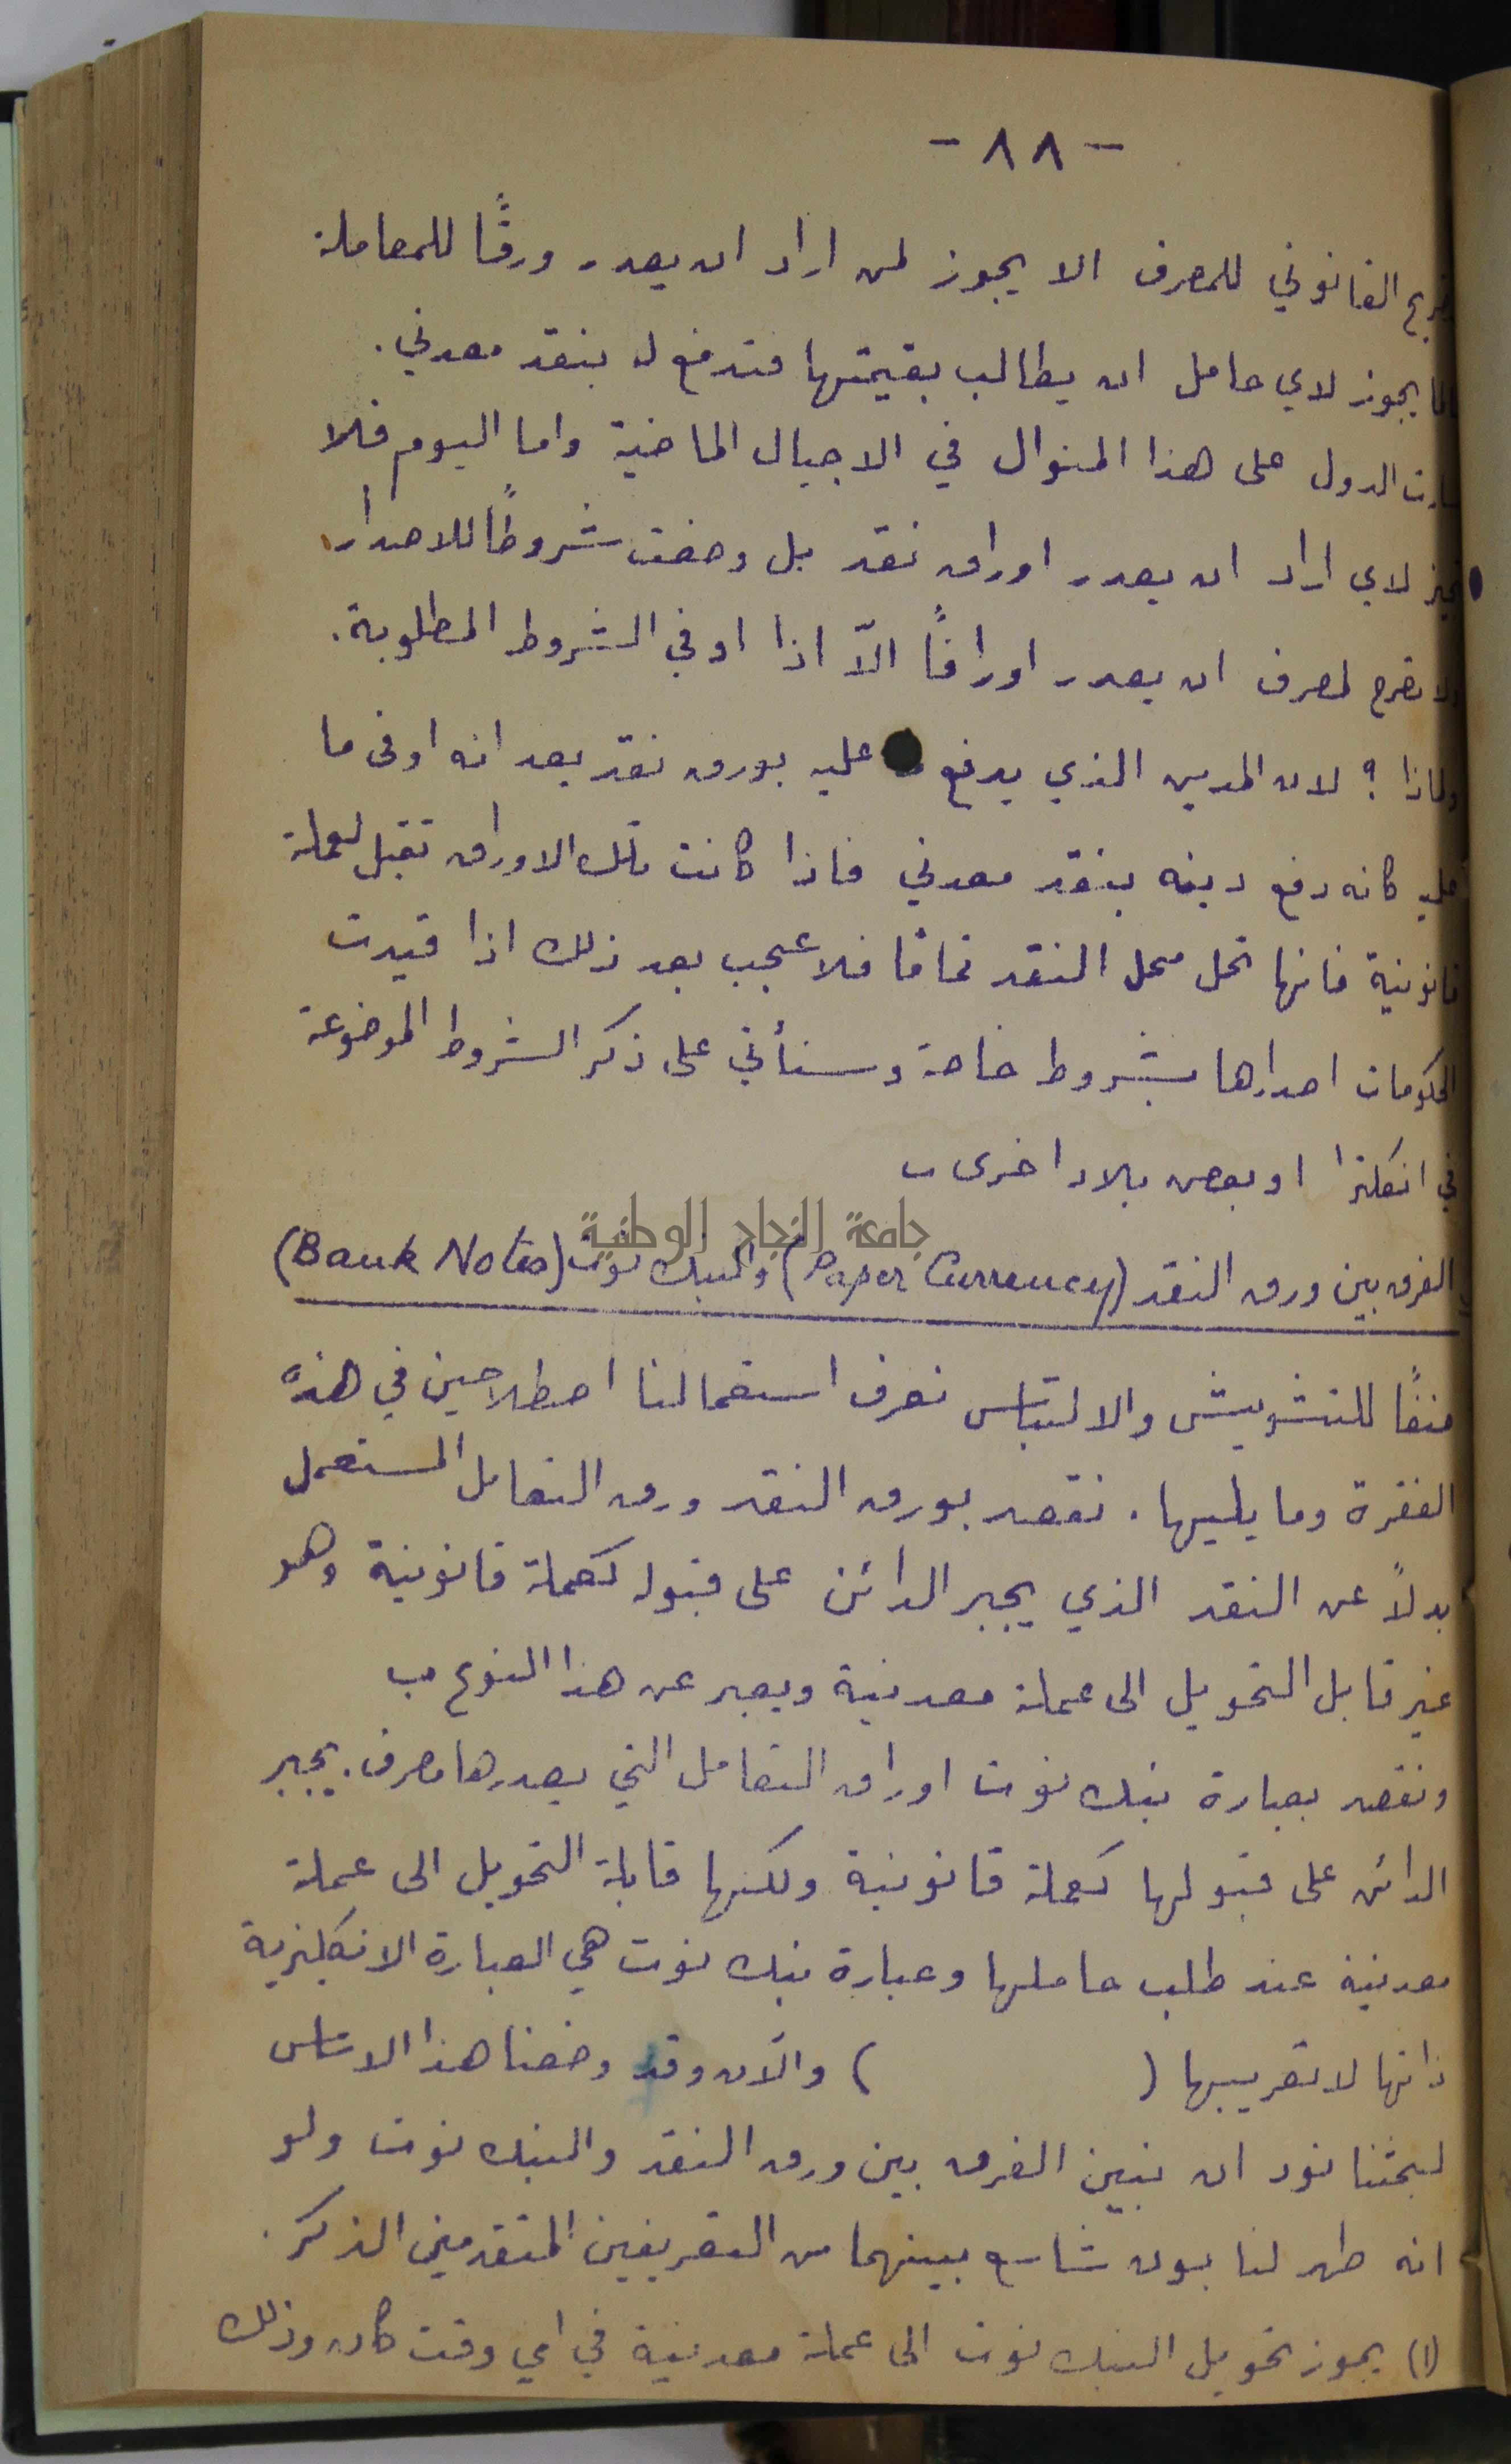 - ٨٨ -
القانوني للمصرف الا يجوز لمن اراد ان يصدر ورقًا للمعاملة
يجوز لاي حامل ان يطالب بقيمتها فتدفع له بنقد معدني.
الدول على هذا المنوال في الاجيال الماضية واما اليوم فلا
لاي اراد ان يصدر اوراق نقد بل وضعت شروطًا للاصدار
ولا تصرح لمصرف ان يصدر اوراقًا الّا اذا اوفى الشروط المطلوبة.
ولماذا ؟ لان المدين الذي يدفع عليه بورق نقد يعد انه اوفى ما
عليه كانه دفع دينه بنقد معدني فاذا كانت تلك الاوراق تقبل لعملة
قانونية فانها تحل محل النقد تمامًا فلا عجب بعد ذلك اذا قيدت
الحكومات اصدارها بشروط خاصة وسنأتي على ذكر الشروط الموضوعة
في انكلترا او بعض بلاد اخرى
جامعة النجاح الوطنية
الفرق بين ورق النقد (Paper Currency) والبنك نوت (Bank Notes)
منعًا للتشويش والالتباس نعرف استعمالنا اصطلاحين في هذه
الفقرة وما يليها. نقصد بورق النقد ورق التعامل المستعمل
بدلًا عن النقد الذي يجبر الدائن على قبوله كعملة قانونية وهو
غير قابل التحويل الى عملة معدنية ويعبر عن هذا النوع ب
ونقصد بعبارة بنك نوت اوراق التعامل التي يصدرها مصرف. يجبر
الدائن على قبولها كعملة قانونية ولكنها قابلة التحويل الى عملة
معدنية عند طلب حاملها وعبارة بنك نوت هي العبارة الانكليزية
ذاتها لا تعريبها ( ) والآن وقد وضعنا هذا الاساس
لبحثنا نود ان نبين الفرق بين ورق النقد والبنك نوت ولو
انه ظهر لنا بون شاسع بينهما من التعريفين المتقدمين الذكر.
(١) يجوز تحويل البنك نوت الى عملة معدنية في اي وقت كان وذلك